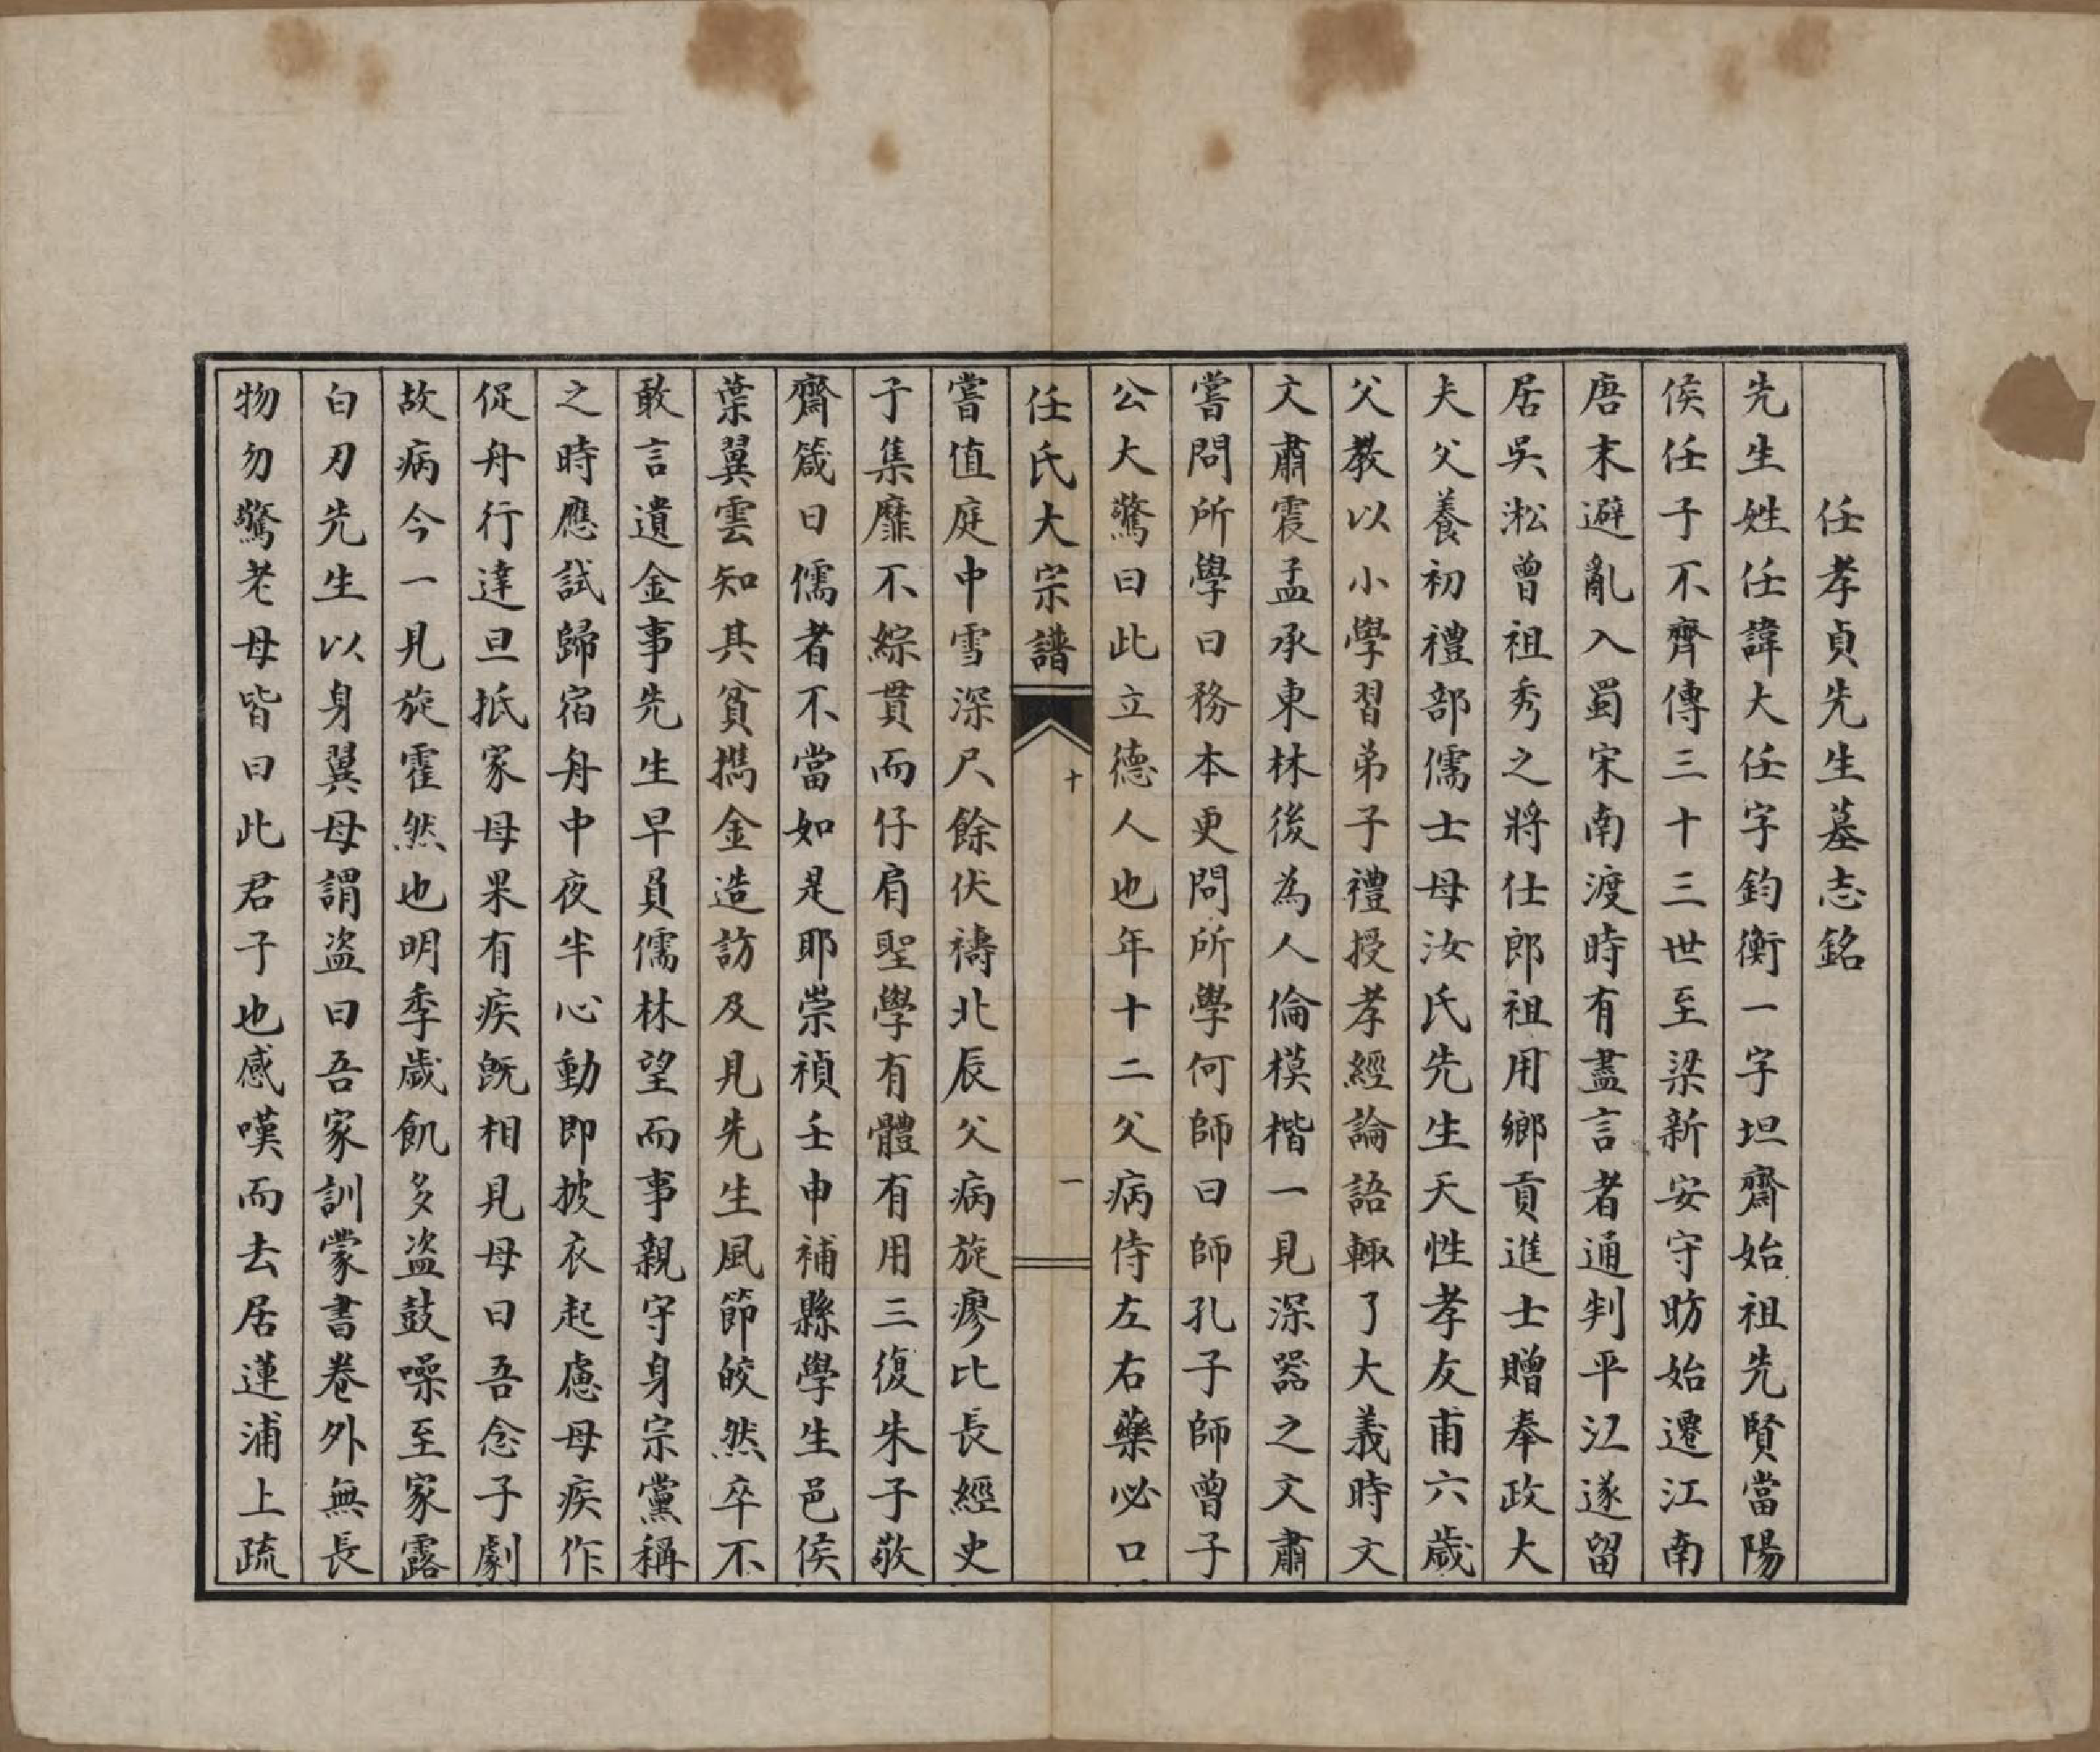 任孝貞先生墓志銘
先生姓任諱大任字鈞衡一字坦齋始祖先賢當陽
侯任子不齊傳三十三世至梁新安守昉始遷江南
唐末避亂入蜀宋南渡時有盡言者通判平江遂留
居吳淞曾祖秀之將仕郎祖用鄉貢進士贈奉政大
夫父養初禮部儒士母汝氏先生天性孝友甫六歲
父教以小學習弟子禮授孝經論語輒了大義時文
文肅震孟承東林後為人倫模楷一見深器之文肅
嘗問所學曰務本更問所學何師曰師孔子師曾子
公大驚曰此立德人也年十二父病侍左右藥必口
任氏大宗譜
十
一
嘗值庭中雪深尺餘伏禱北辰父病旋瘳比長經史
子集靡不綜貫而仔肩聖學有體有用三復朱子敬
齋箴曰儒者不當如是耶崇禎壬申補縣學生邑侯
葉翼雲知其貧攜金造訪及見先生風節皎然卒不
敢言遺金事先生早員儒林望而事親守身宗黨稱
之時應試歸宿舟中夜半心動即披衣起慮母疾作
促舟行達旦抵家母果有疾旣相見母曰吾念子劇
故病今一見旋霍然也明季歲飢多盜鼓噪至家露
白刃先生以身翼母謂盜曰吾家訓蒙書卷外無長
物勿驚老母皆曰此君子也感嘆而去居蓮浦上疏